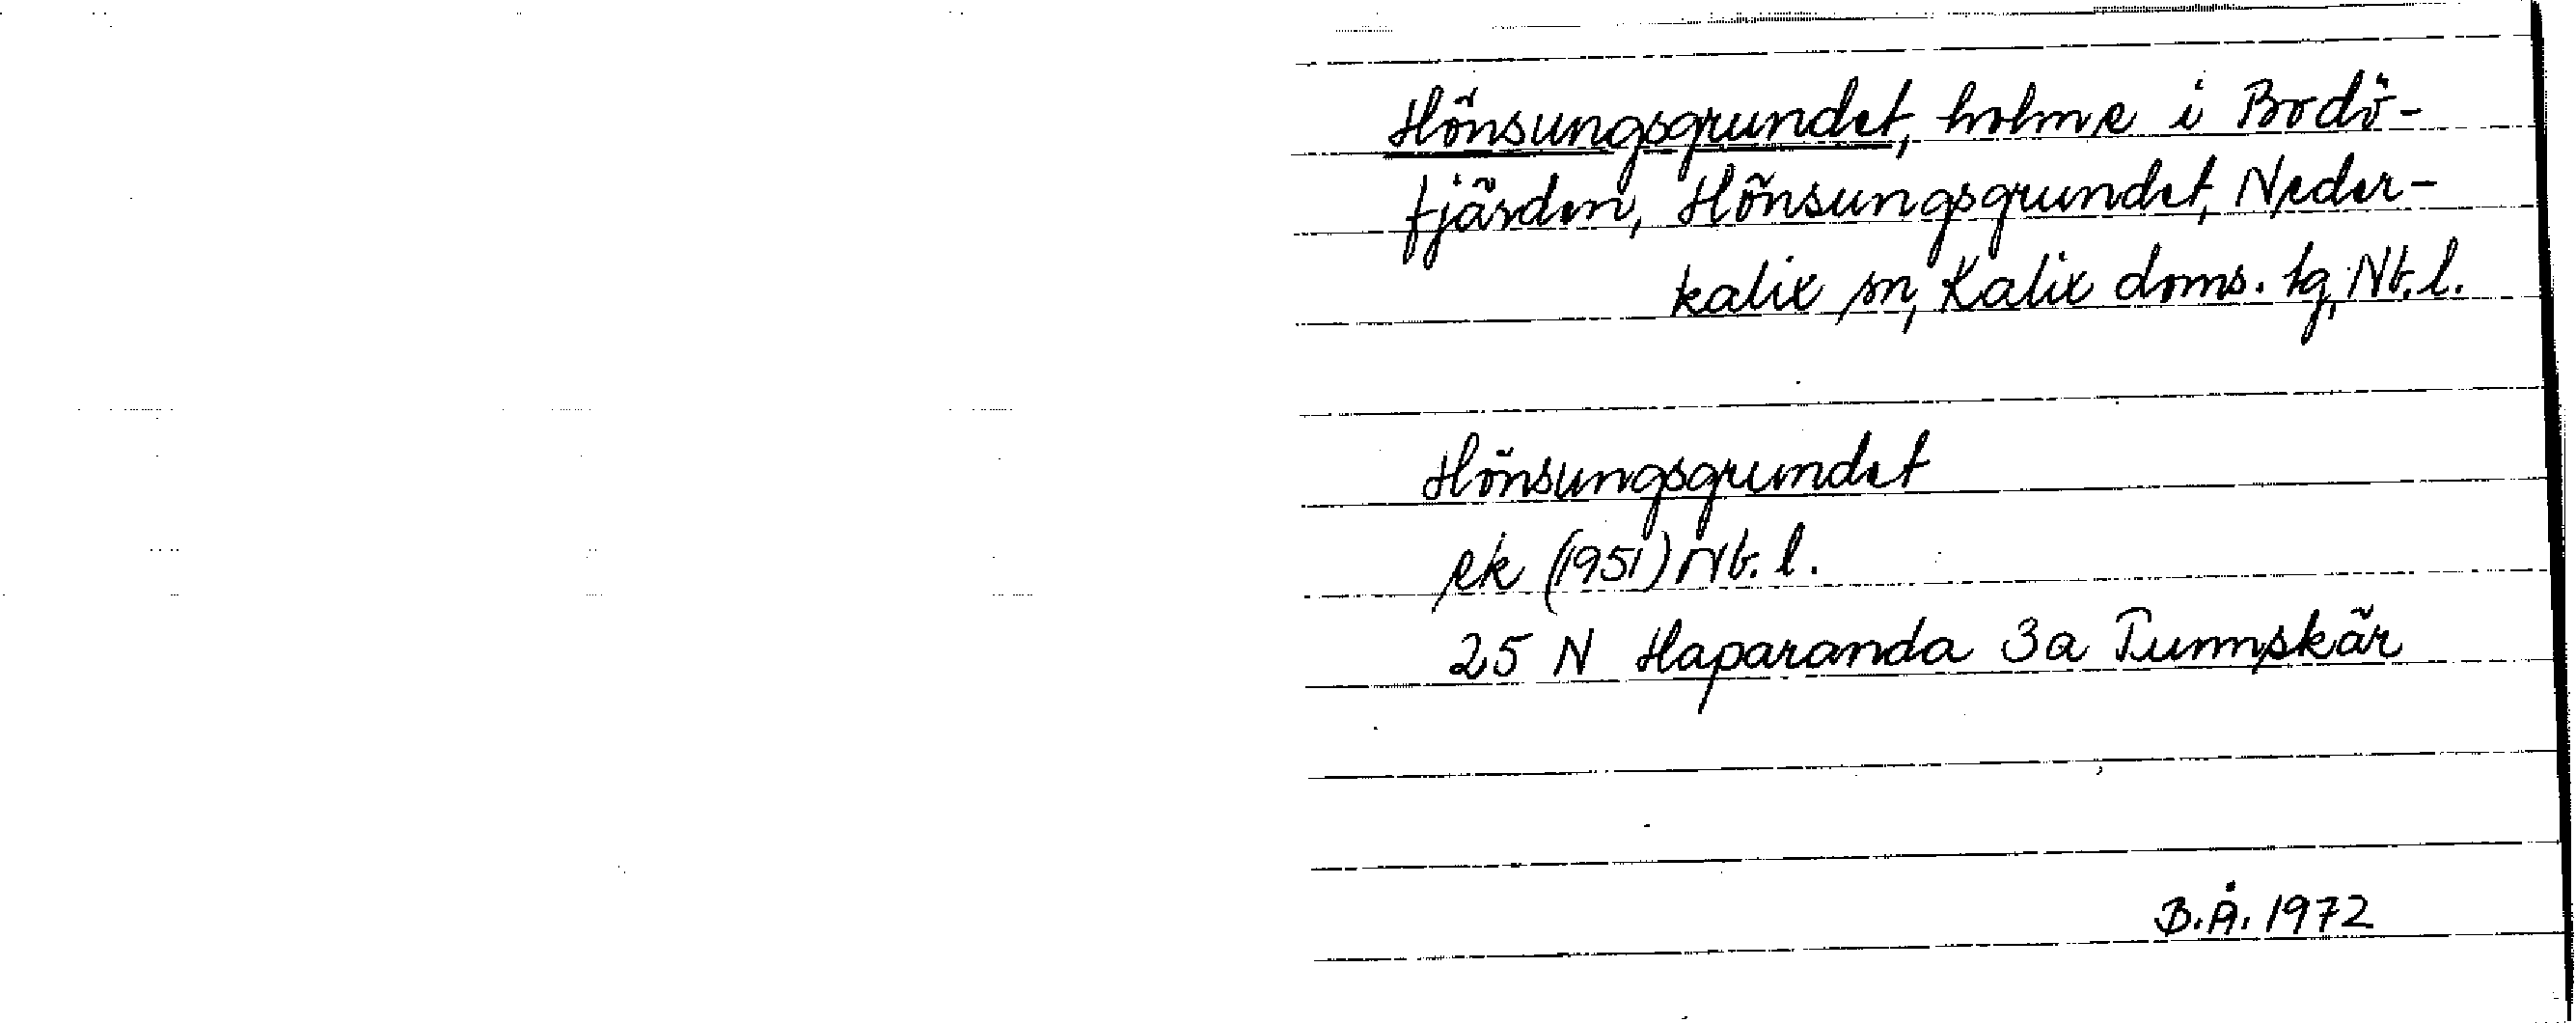 Hönsungsgrundet, holme i Bodö-
fjärden, Hönsungsgrundet, Neder-
kalix sn, Kalix doms. tg, Nb. l.
Hönsungsgrundet
ek (1951) Nb. l.
25 N Haparanda 3a Rumpskär
B.Å. 1972